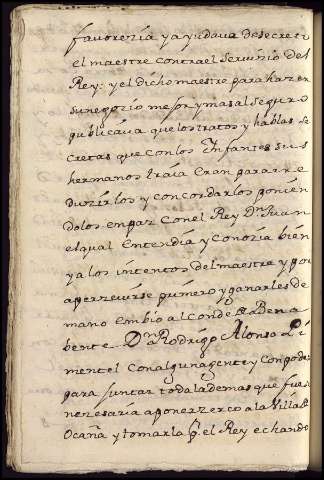 favorezia y ayudava de secreto
el maestre contra el servizio del
Rey: y el dicho maestre para hazer
su negozio mejor y mas al seguro
publicava que los tratos y hablas se
cretas que con los Infantes sus
hermanos traia eran para re
duzirlos y concordarlos ponien
dolos en paz con el Rey Dn Juan
el qual entendia y conozia bien
ya los intentos del maestre y por
aperzevirse primero y ganarles de
mano embio al Conde de Bena
bente Dn Rodrigo Alonso Pi
mentel con alguna gente y con poder
para juntar toda la demas que fuese
nezesaria a poner zerco a la Villa de
Ocaña y tomarla q el Rey echando